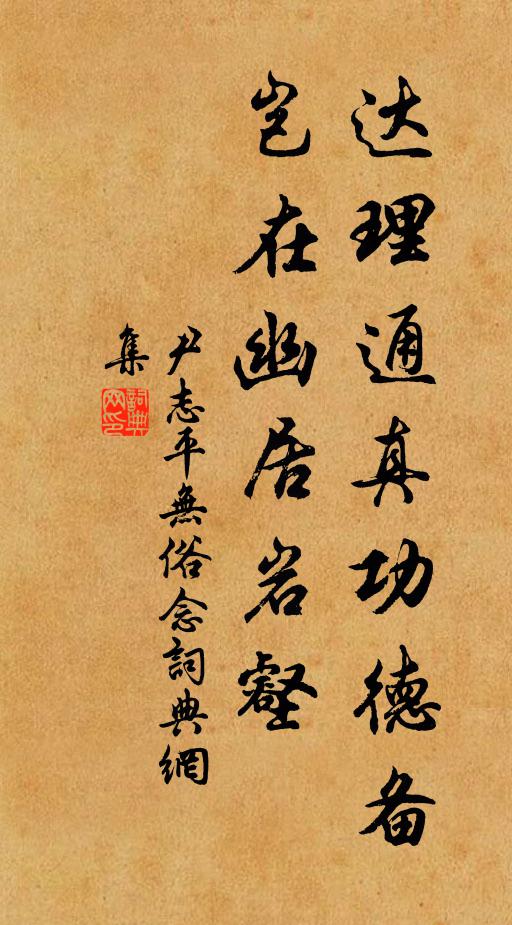 达理通真功德备
岂在幽居岩壑
尹志平無俗念詞典網
集
詞典网印